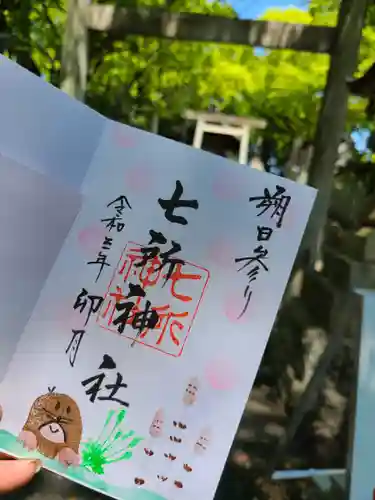 朔日参り
七所神社
七所神社
令和三年
卯月